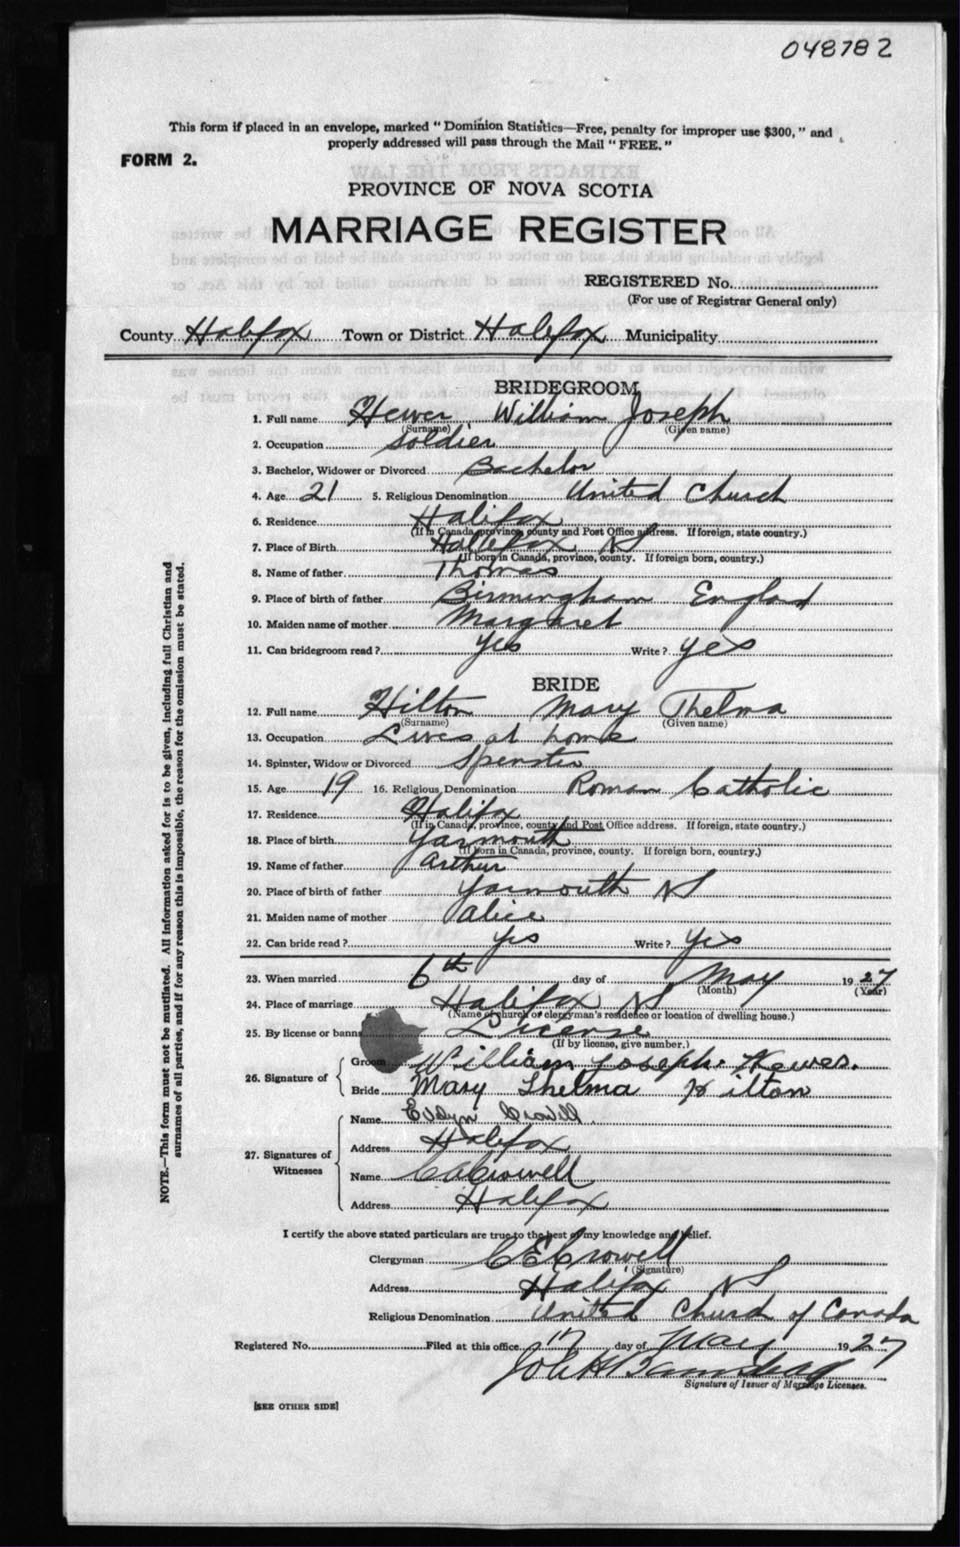 048782
This form if placed in an envelope, marked "Dominion Statistics—Free, penalty for improper use $300," and
properly addressed will pass through the Mail "FREE."
FORM 2.
PROVINCE OF NOVA SCOTIA
MARRIAGE REGISTER
REGISTERED No.
(For use of Registrar General only)
County Halifax Town or District Halifax Municipality
BRIDEGROOM
1. Full name Hewer William Joseph
(Surname) (Given name)
2. Occupation Soldier
3. Bachelor, Widower or Divorced Bachelor
4. Age 21 5. Religious Denomination United Church
6. Residence Halifax
(If in Canada, province, county and Post Office address. If foreign, state country.)
7. Place of Birth Halifax NS
(If born in Canada, province, county. If foreign born, country.)
8. Name of father Thomas
9. Place of birth of father Birmingham England
10. Maiden name of mother Margaret
11. Can bridegroom read? Yes Write? yes
BRIDE
12. Full name Hilton Mary Thelma
(Surname) (Given name)
13. Occupation Lives at home
14. Spinster, Widow or Divorced Spinster
15. Age 19 16. Religious Denomination Roman Catholic
17. Residence Halifax
(If in Canada, province, county and Post Office address. If foreign, state country.)
18. Place of birth Yarmouth
(If born in Canada, province, county. If foreign born, country.)
19. Name of father Arthur
20. Place of birth of father Yarmouth NS
21. Maiden name of mother Alice
22. Can bride read? Yes Write? Yes
23. When married 6th day of May 1927
(Month) (Year)
24. Place of marriage Halifax NS
(Name of church or clergyman's residence or location of dwelling house.)
25. By license or banns License
(If by license, give number.)
26. Signature of
Groom William Joseph Hewer.
Bride Mary Thelma Hilton
27. Signatures of Witnesses
Name Evelyn Crowell
Address Halifax
Name C A Crowell
Address Halifax
I certify the above stated particulars are true to the best of my knowledge and belief.
Clergyman C E Crowell
(Signature)
Address Halifax NS
Religious Denomination United Church of Canada
Registered No. Filed at this office 17 day of May 1927
Signature of Issuer of Marriage Licenses.
[SEE OTHER SIDE]
NOTE.—This form must not be mutilated. All information asked for is to be given, including full Christian and
surnames of all parties, and if for any reason this is impossible, the reason for the omission must be stated.